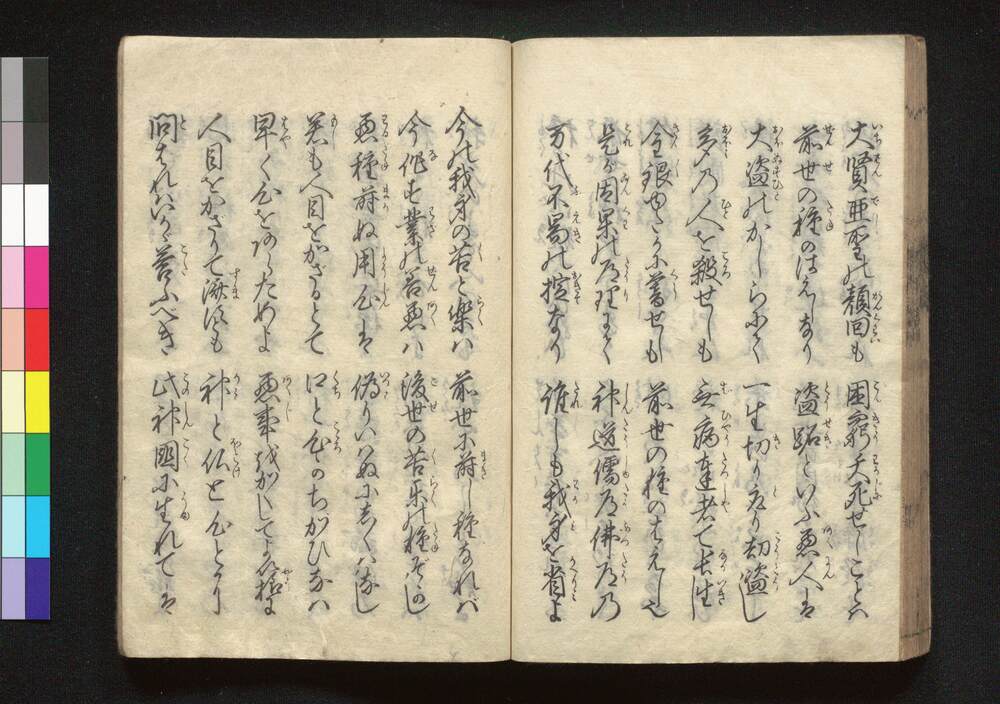 大賢亜聖の顔回も　困窮夭死せしことハ
前世の種のはえしなり　盗跖といふ悪人は
大盗のかしらにて　一生切り取り劫盗し
多の人を殺せしも　無病達者で長生し
金銀ゆたかに蓄せしも　前世の種のはえし也
是が因果の道理にて　神道儒道佛道の
万代不易の掟なり　誰しも我身を省よ
今の我身の苦と楽ハ　前世に蒔し種なれバ
今作す業の善悪ハ　後世の苦乐の種ぞかし
悪種蒔ぬ用心は　偽りいはぬにしくハなし
若も人目をかざるとて　口と心のちがひなバ
早く心をあらためよ　悪事をかくしてよい様に
人目をかざりて済すとも　神と仏と心とに
問はれハいかゞ答ふべき　此神国に生れては